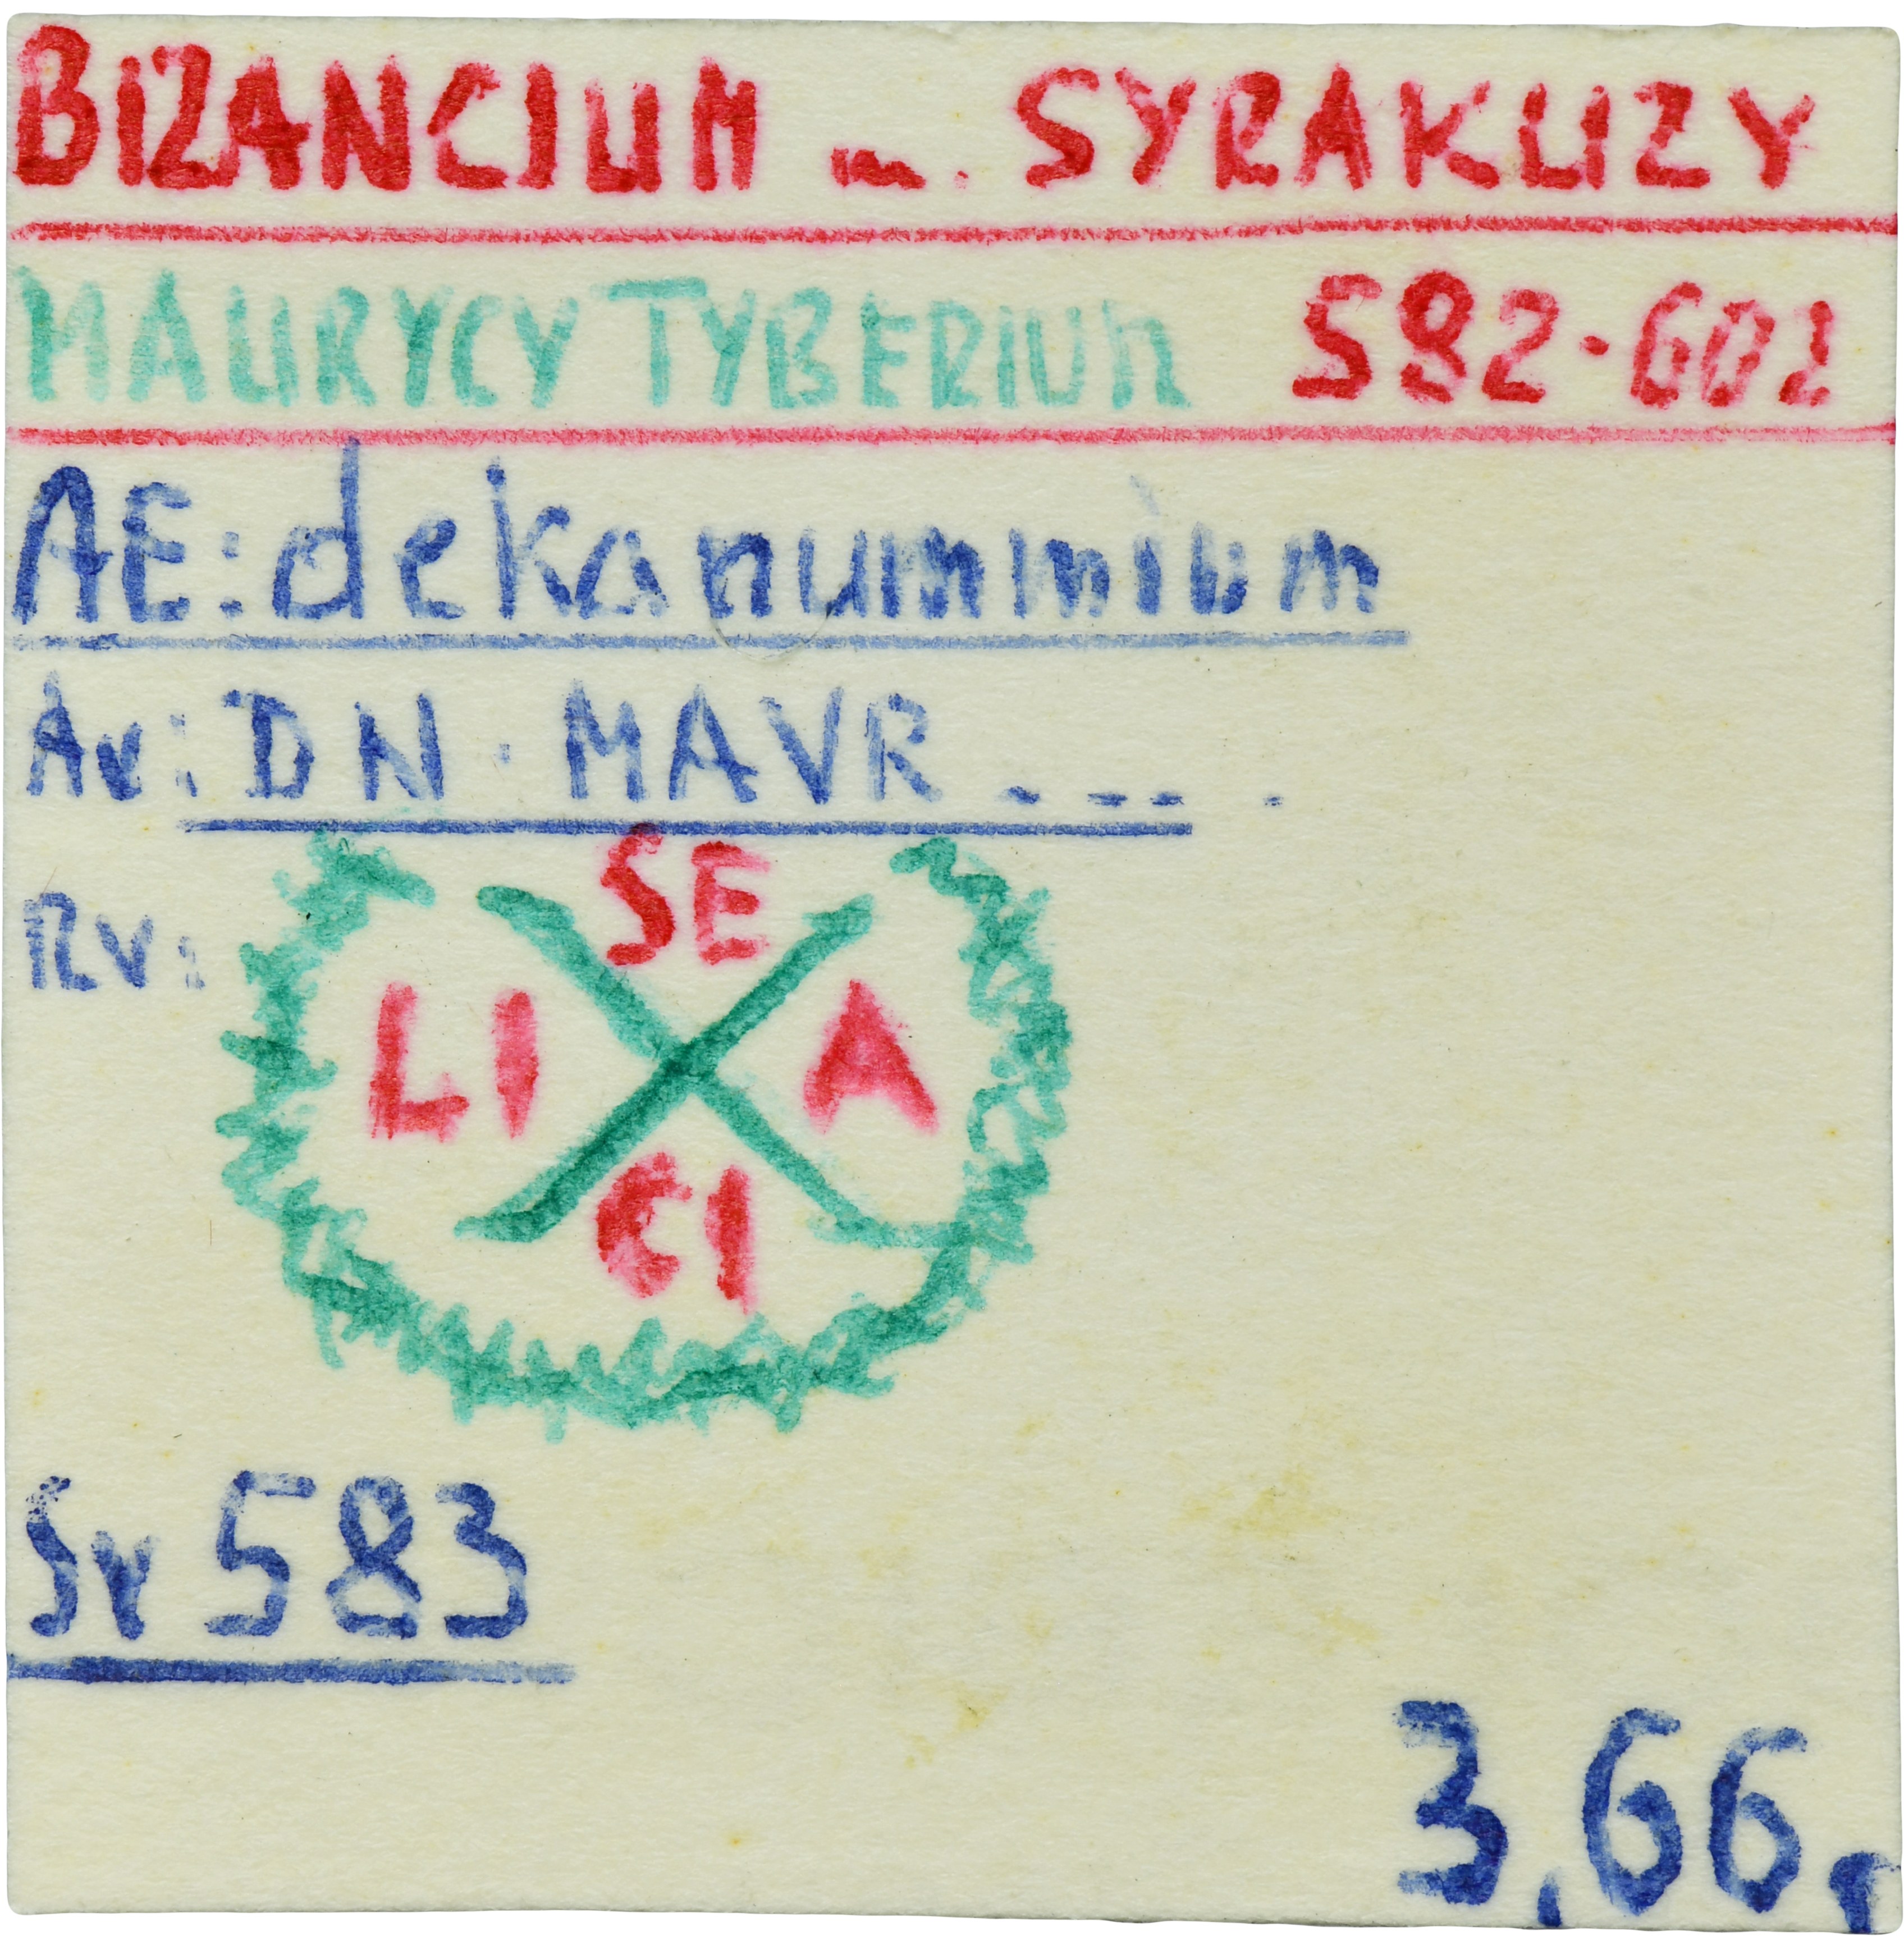 BIZANCJUM - m. SYRAKUZY
MAURYCY TYBERIUM 582-602
AE: dekanummium
Av: DN · MAVR - - - -
Rv:
SE
LI A
CI
Sv 583
3,66